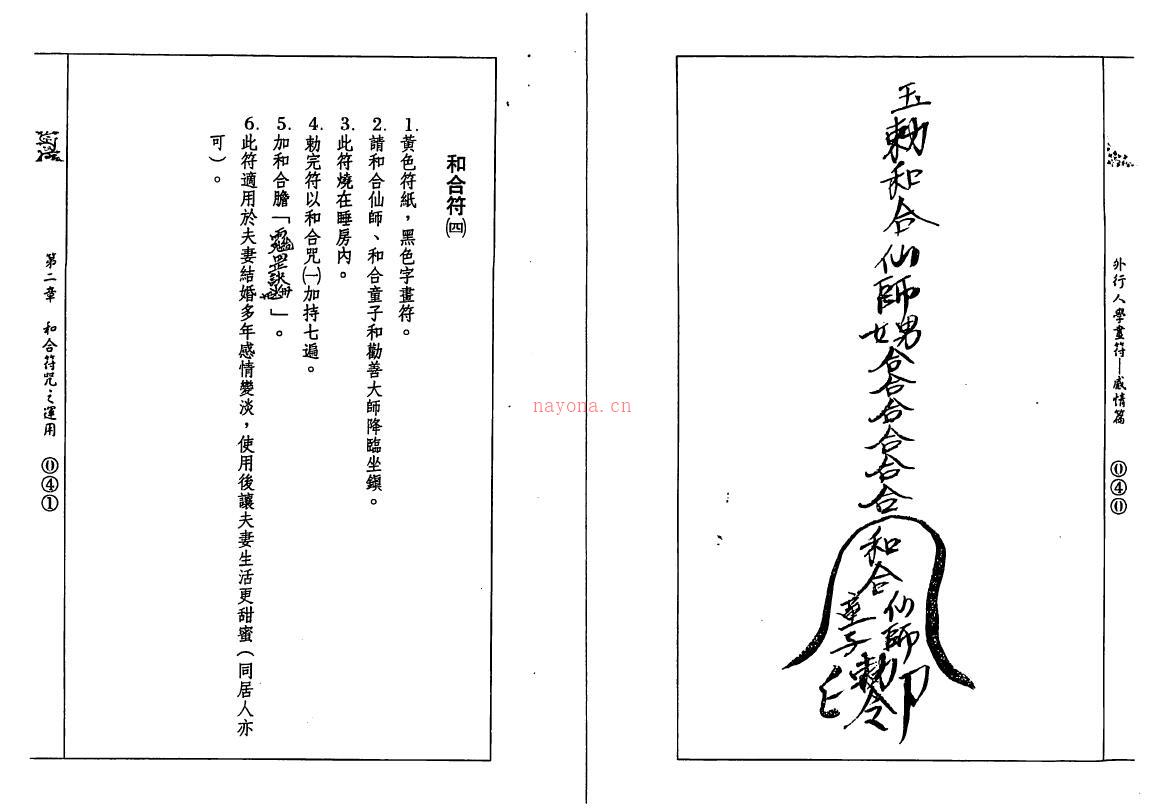 外行人學畫符—感情篇
⓪④⓪
玉勅和合仙師
男
女
合合合合合合
和合
仙師
童子
勅令
印
和合符㈣
1. 黃色符紙，黑色字畫符。
2. 請和合仙師、和合童子和勸善大師降臨坐鎮。
3. 此符燒在睡房內。
4. 勅完符以和合咒㈠加持七遍。
5. 加和合膽「」。
6. 此符適用於夫妻結婚多年感情變淡，使用後讓夫妻生活更甜蜜（同居人亦
可）。
第二章 和合符咒之運用
⓪④①
nayona.cn